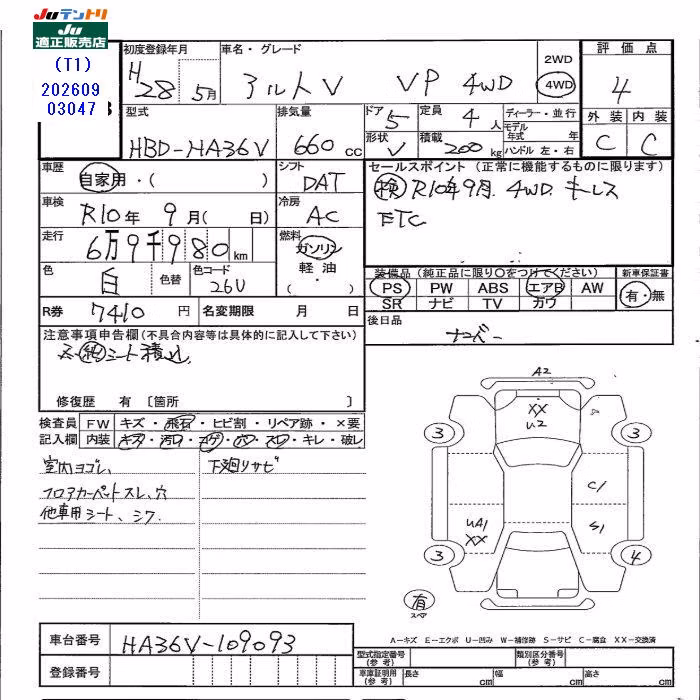 Juテントリ
Ju
適正販売店
(T1)
202609
03047
初度登録年月 車名・グレード 2WD 4WD 評価点
H28 5月 アルトV VP 4WD 4
型式 排気量 ドア 定員 ディーラー・並行 外装 内装
HBD-HA36V 660cc 5 4人 モデル年式 年 C C
形状 V 積載 200kg ハンドル 左・右
車歴 シフト セールスポイント(正常に機能するものに限ります)
自家用・( ) DAT 検R10年9月. 4WD. キーレス
車検 冷房 ETC
R10年 9月( 日) AC
走行 燃料
6万9千980km ガソリン
軽油・( )
色 色替 色コード 装備品(純正品に限り○をつけてください) 新車保証書
白 26U PS PW ABS エアB AW 有・無
SR ナビ TV カワ
R券 7410円 名変期限 月 日 後日品
ナンバー
注意事項申告欄(不具合内容等は具体的に記入して下さい)
シート積込.
修復歴 有〔箇所 〕
検査員 FW キズ・飛石・ヒビ割・リペア跡・×要
記入欄 内装 キズ・汚れ・コゲ・穴・スレ・キレ・破レ
室内ヨゴレ、 下廻りサビ
フロアカーペットスレ、穴
他車用シート、シワ
A2
XX
U2
3 3
C1
UA1
XX
S1
3 4
有
スペア
A-キズ E-エクボ U-凹み W-補修跡 S-サビ C-腐食 XX-交換済
車台番号 HA36V-109093
登録番号
型式指定番号(参考) 類別区分番号(参考)
車庫証明用(参考) 長さ cm 幅 cm 高さ cm